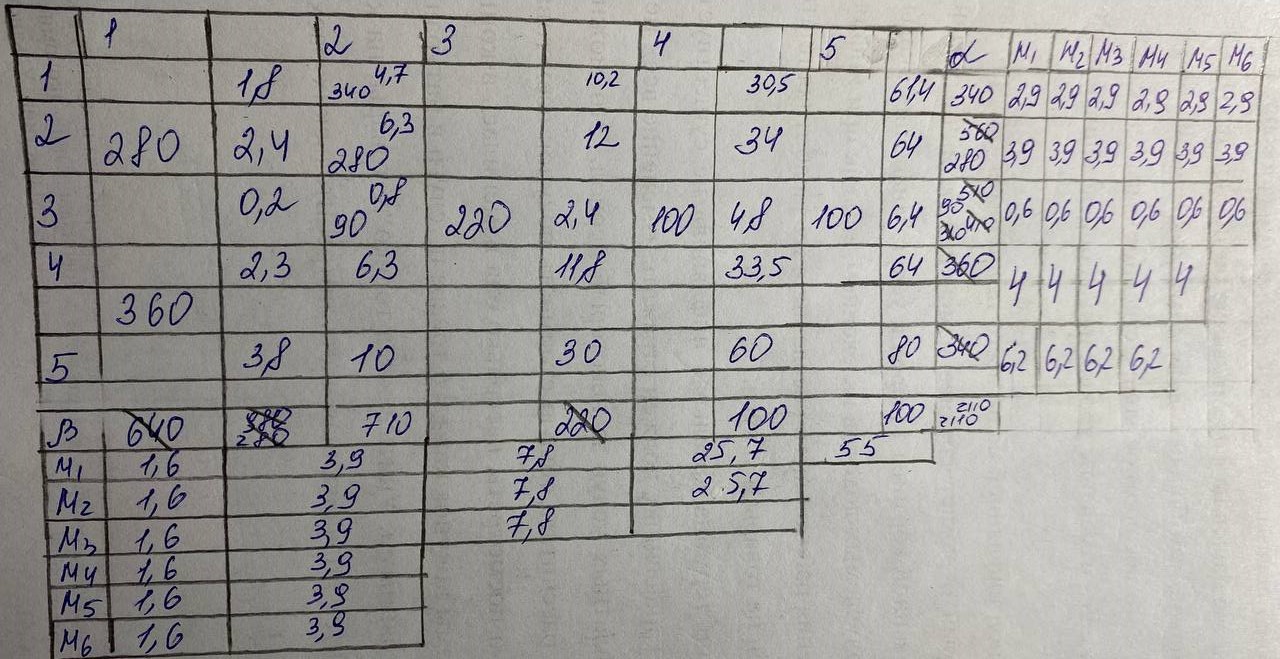 1 2 3 4 5 α M1 M2 M3 M4 M5 M6
1 1,8 340 4,7 10,2 30,5 61,4 340 2,9 2,9 2,9 2,9 2,9 2,9
2 280 2,4 280 6,3 12 34 64 560 280 3,9 3,9 3,9 3,9 3,9 3,9
3 0,2 90 0,8 220 2,4 100 4,8 100 6,4 90 510 310 410 0,6 0,6 0,6 0,6 0,6 0,6
4 2,3 6,3 11,8 33,5 64 360 4 4 4 4 4
360
5 3,8 10 30 60 80 340 6,2 6,2 6,2 6,2
β 640 280 710 220 100 100 2110 2110
M1 1,6 3,9 7,8 25,7 55
M2 1,6 3,9 7,8 25,7
M3 1,6 3,9 7,8
M4 1,6 3,9
M5 1,6 3,9
M6 1,6 3,9